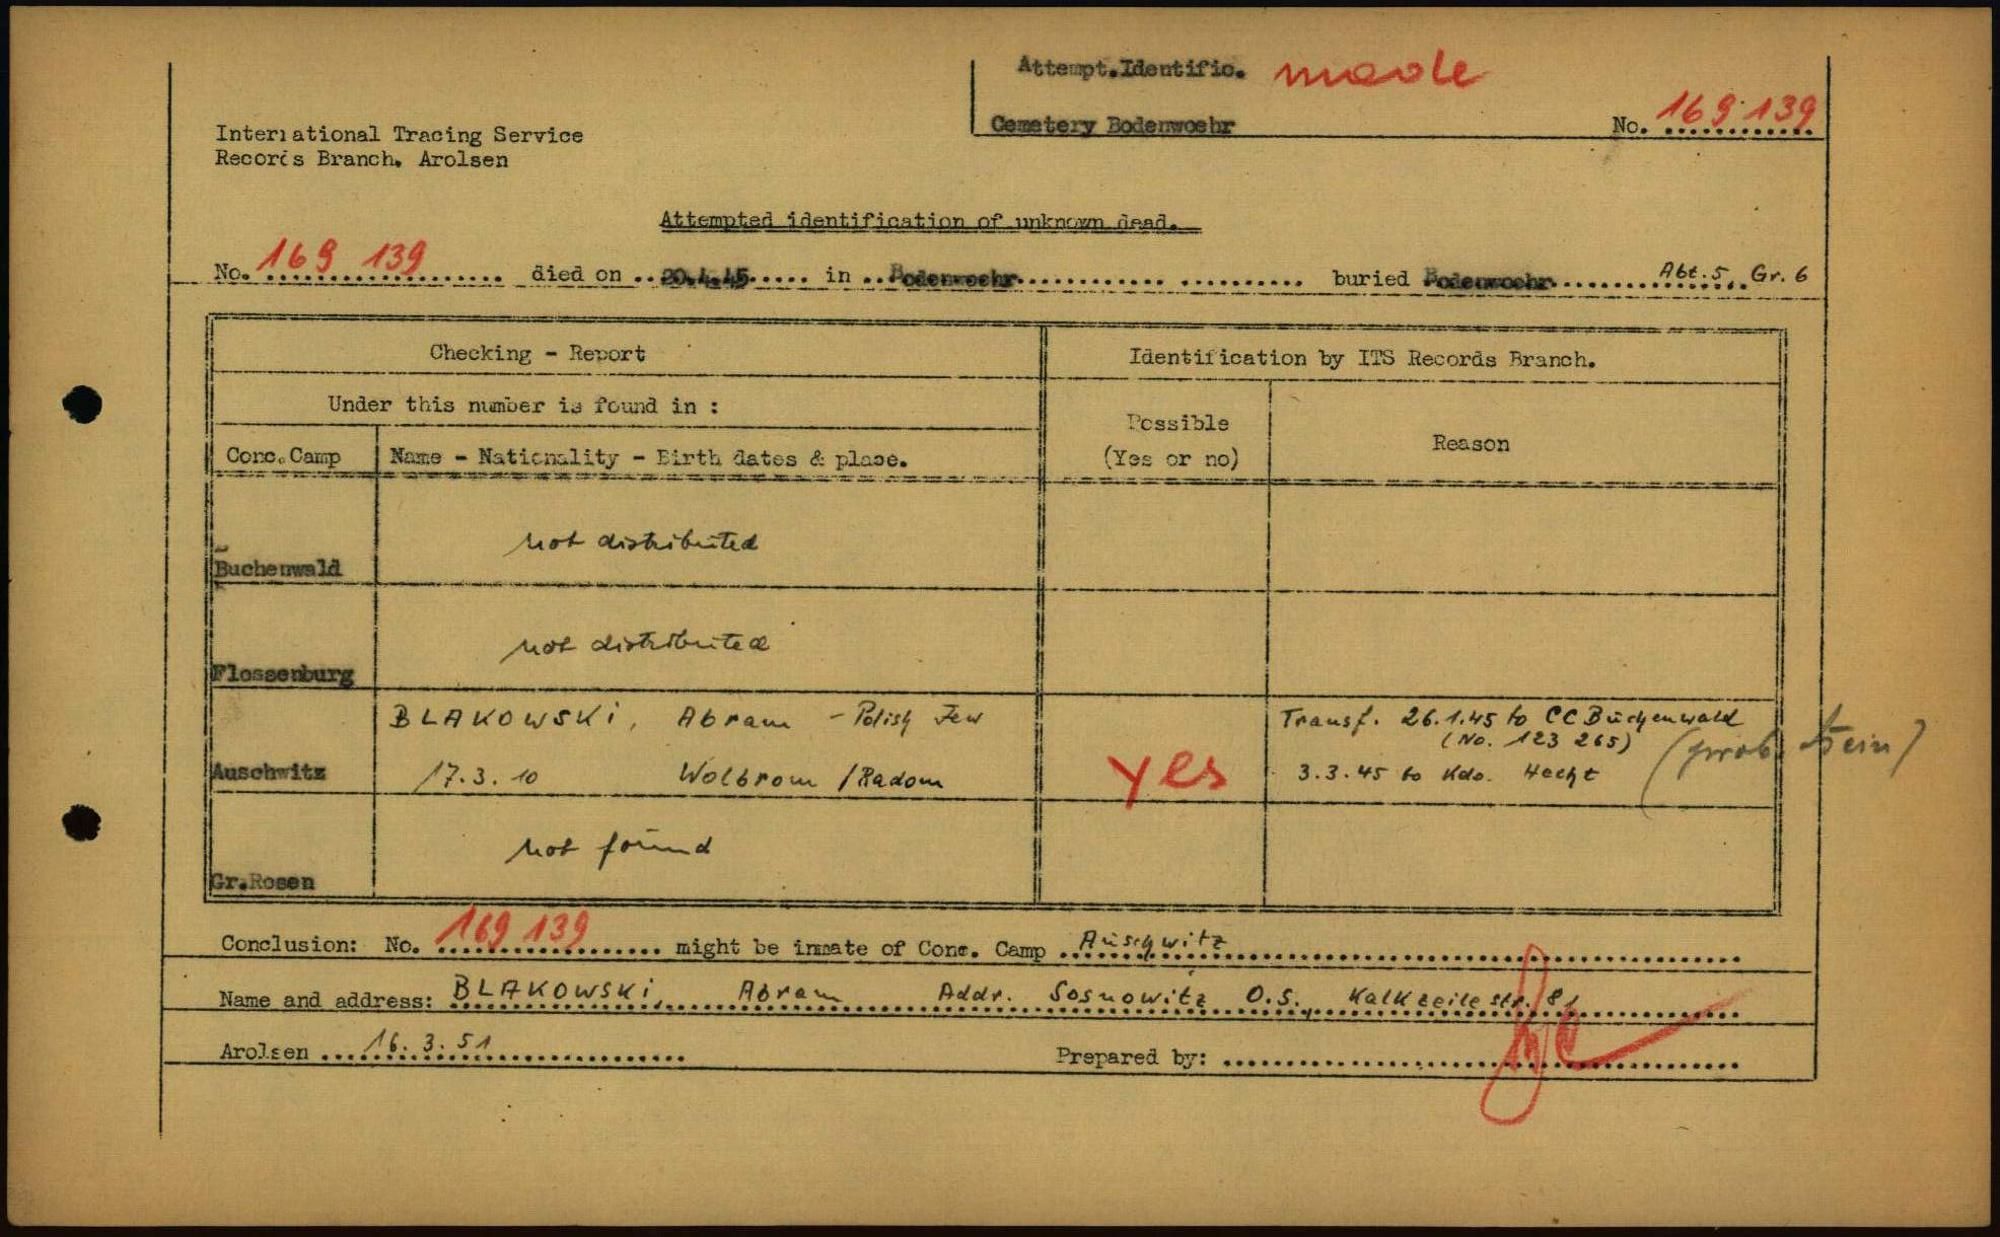 Attempt.Identific. made
Cemetery Bodenwoehr No. 169 139
International Tracing Service
Records Branch, Arolsen
Attempted identification of unknown dead.
No. 169 139 died on 20.4.45 in Bodenwoehr buried Bodenwoehr Abt.5 Gr. 6
Checking - Report
Identification by ITS Records Branch.
Under this number is found in :
Possible
(Yes or no)
Reason
Conc.Camp
Name - Nationality - Birth dates & place.
Buchenwald
not distributed
Flossenburg
not distributed
Auschwitz
BLAKOWSKI, Abram - Polish Jew
17.3.10 Wolbrom /Radom
yes
Transf. 26.1.45 to CC Buchenwald
(No. 123 265)
3.3.45 to Kdo. Hecht
Gr.Rosen
not found
Conclusion: No. 169 139 might be inmate of Conc. Camp Auschwitz
Name and address: BLAKOWSKI, Abram Addr. Sosnowitz O.S., Kalkzeilestr. 81
Arolsen 16.3.51
Prepared by: